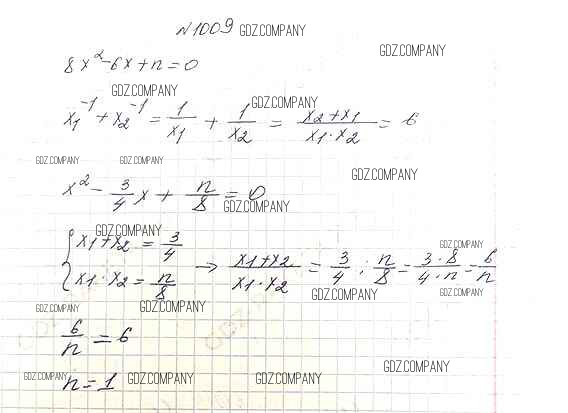 №1009 GDZ.COMPANY
GDZ.COMPANY
8x²-6x+n=0
GDZ.COMPANY
GDZ.COMPANY
x₁⁻¹+x₂⁻¹ = 1/x₁ + 1/x₂ = (x₂+x₁)/(x₁·x₂) = 6
GDZ.COMPANY GDZ.COMPANY
GDZ.COMPANY
x² - 3/4 x + n/8 = 0
GDZ.COMPANY
GDZ.COMPANY
GDZ.COMPANY
{ x₁+x₂ = 3/4
x₁·x₂ = n/8 → (x₁+x₂)/(x₁·x₂) = 3/4 : n/8 = (3·8)/(4·n) = 6/n
GDZ.COMPANY GDZ.COMPANY
GDZ.COMPANY GDZ.COMPANY
6/n = 6
GDZ.COMPANY
GDZ.COMPANY n=1 GDZ.COMPANY GDZ.COMPANY